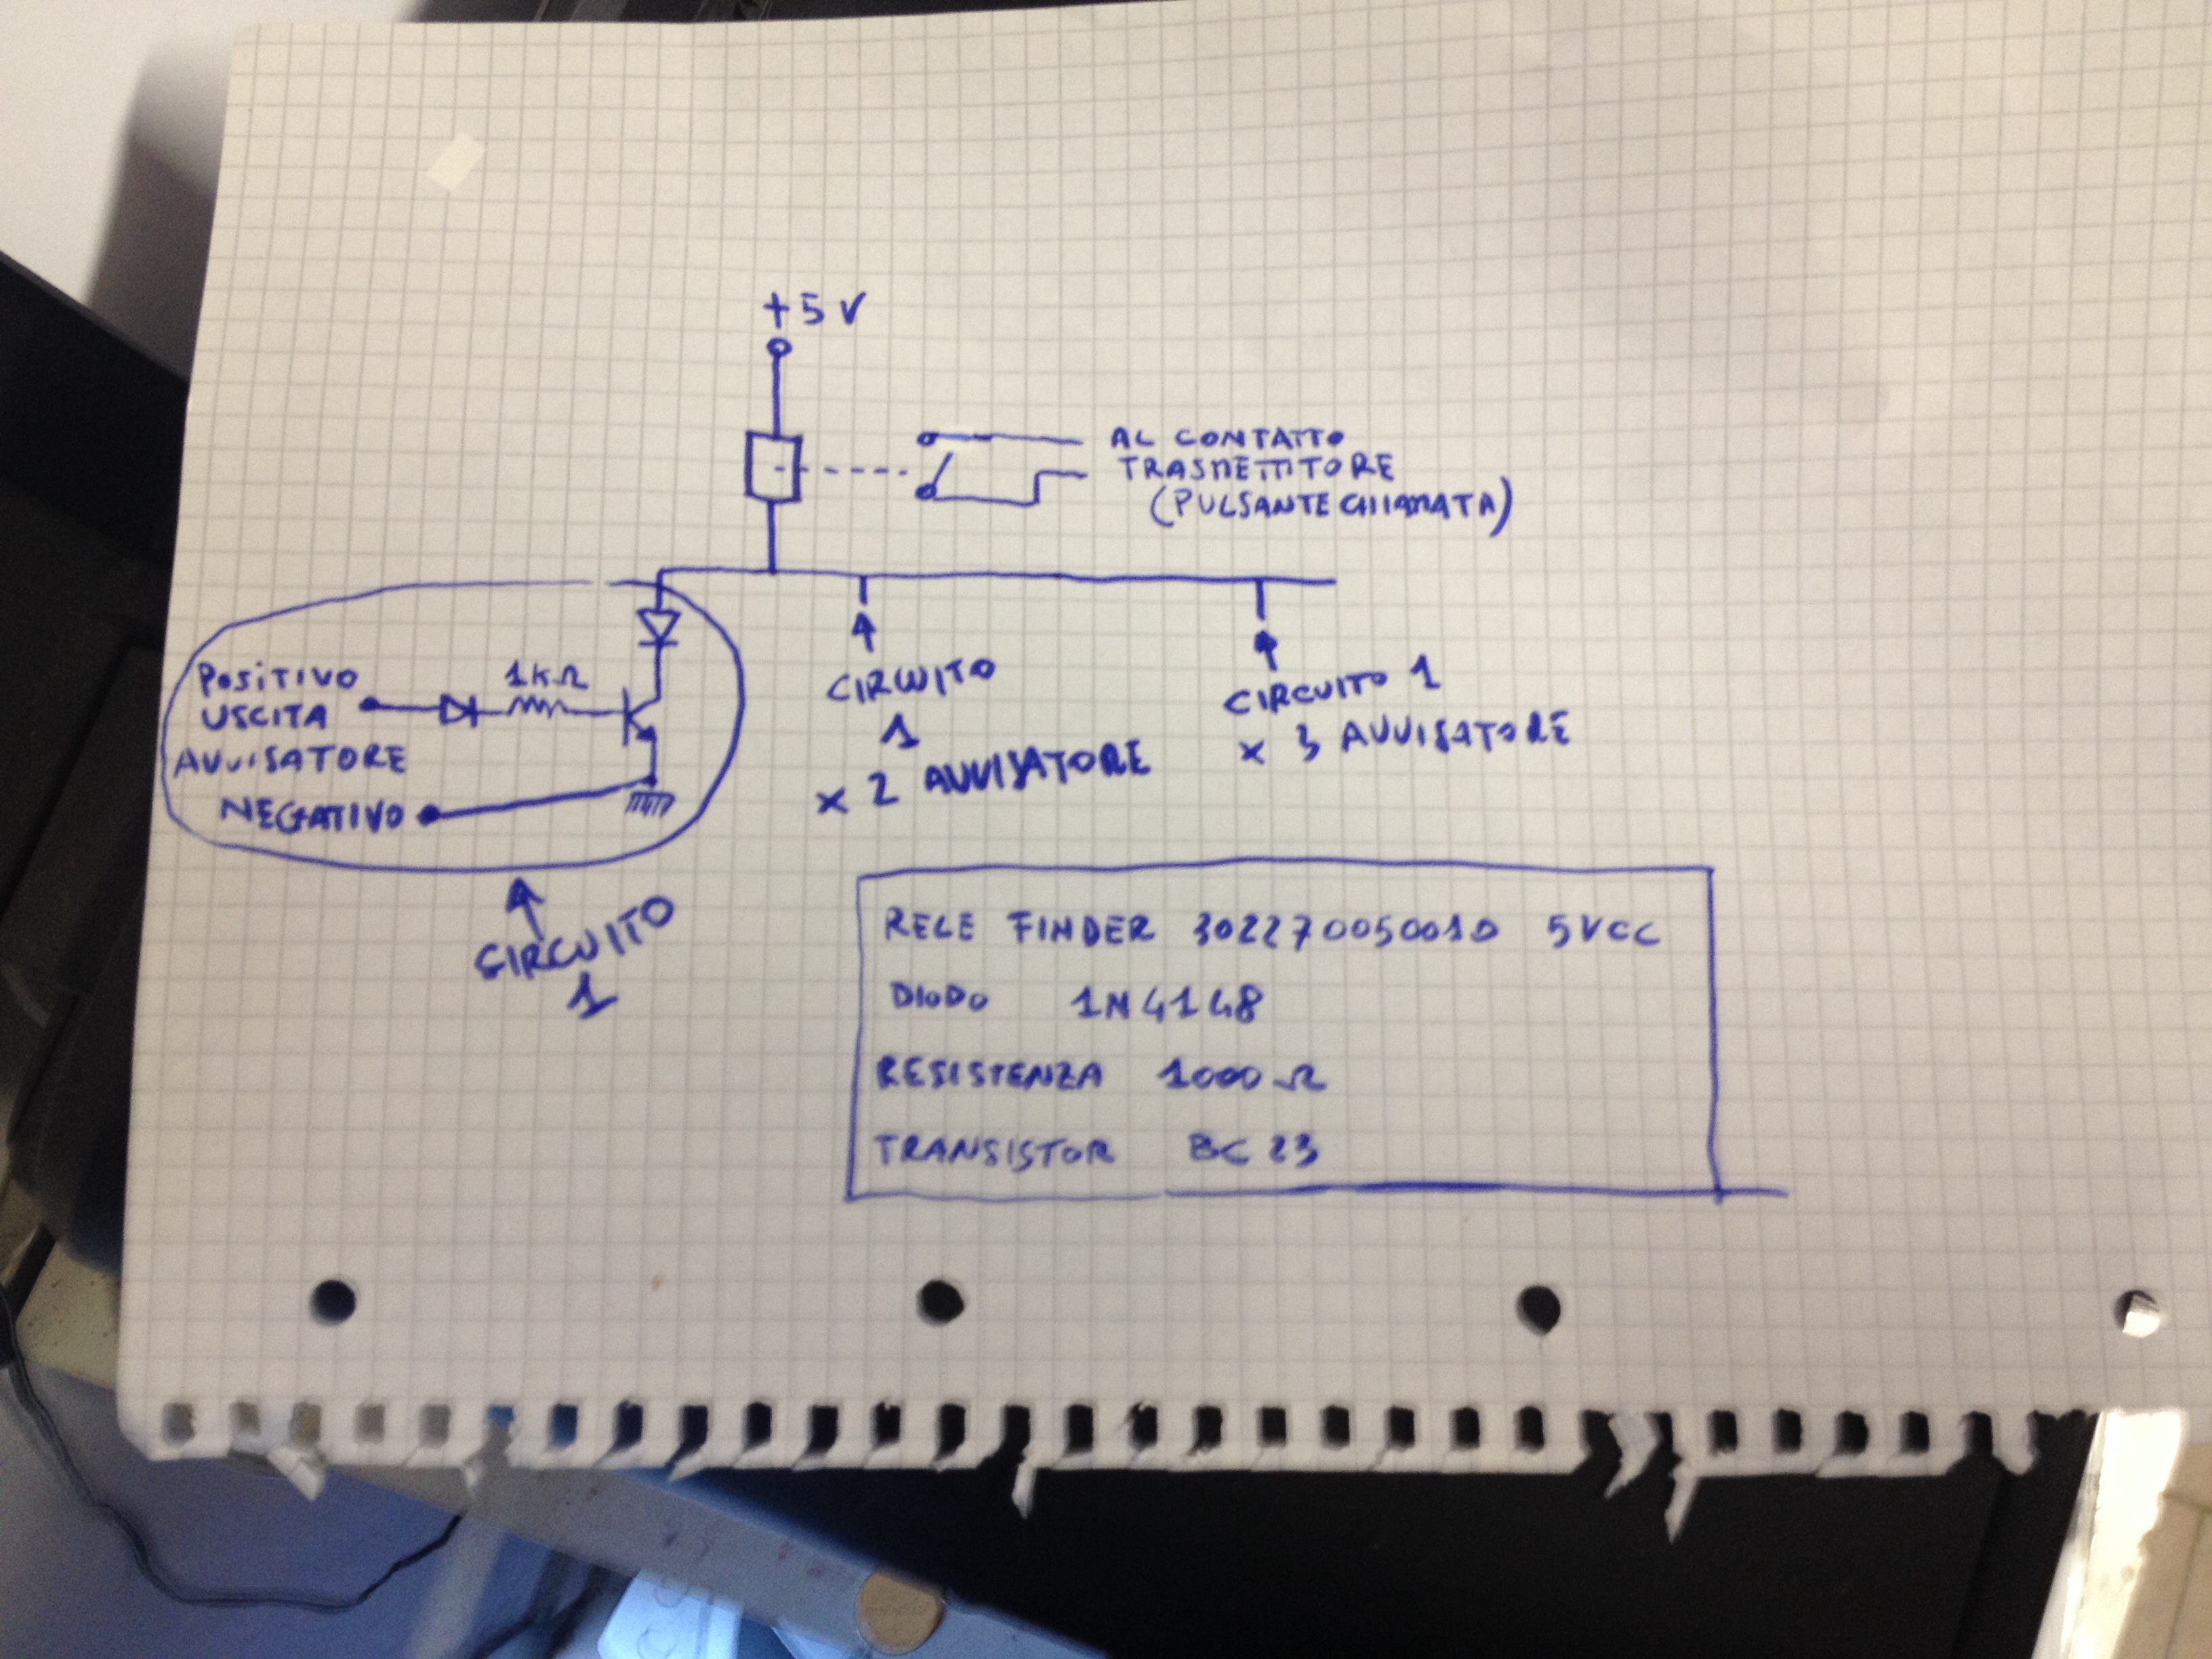 +5V
AL CONTATTO
TRASMETTITORE
(PULSANTE CHIAMATA)
POSITIVO
USCITA
AVVISATORE
NEGATIVO
1KΩ
CIRCUITO
1
x 2 AVVISATORE
CIRCUITO 1
x 3 AVVISATORE
CIRCUITO
1
RELE FINDER 302270050010 5VCC
DIODO 1N4148
RESISTENZA 1000 Ω
TRANSISTOR BC 23